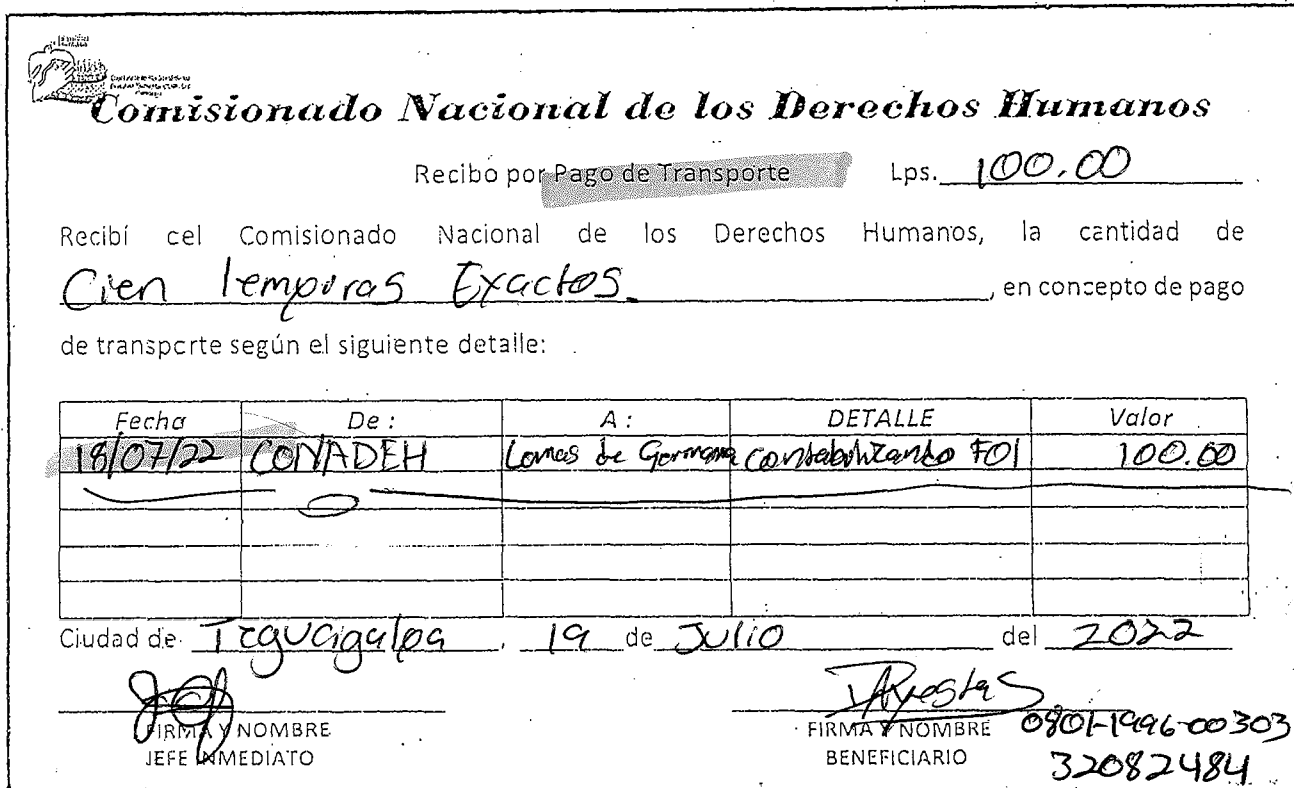 Comisionado Nacional de los Derechos Humanos
Recibo por Pago de Transporte Lps. 100.00
Recibí cel Comisionado Nacional de los Derechos Humanos, la cantidad de
Cien lempiras Exactos, en concepto de pago
de transporte según el siguiente detalle:
Fecha De : A : DETALLE Valor
18/07/22 CONADEH Lomas de Germania contabilizando FOI 100.00
Ciudad de Tegucigalpa, 19 de Julio del 2022
FIRMA Y NOMBRE FIRMA Y NOMBRE 0801-1996-00303
JEFE INMEDIATO BENEFICIARIO 32082484